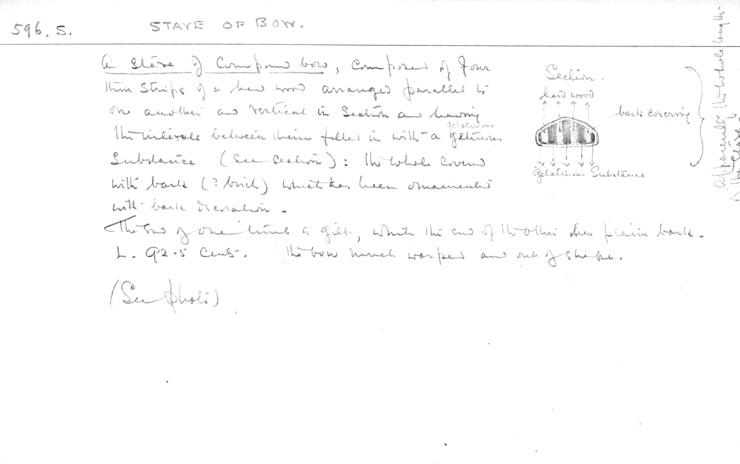 596. S. STAVE OF BOW.
A Stave of Compound bow, composed of four
thin strips of a hard wood arranged parallel to
one another and vertical in Section and having
the intervals between them filled in with a gelatinous
gelatinous
Substance (See Section): the whole covered
with bark (? birch) which has been ornamented
with bark decoration.
The end of one limb is gilt, while the end of the other shows plain bark.
L. 92.5 Cents. The bow much warped and out of shape.
(See photo)
Section.
hard wood
bark covering
Gelatinous Substance
apparently the whole length
of the Stave